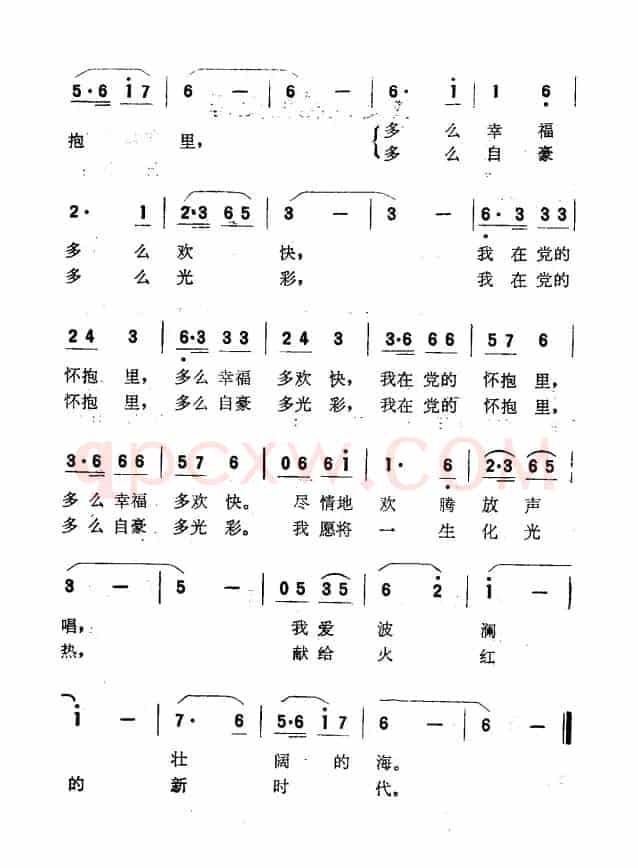 5·6 i7 | 6 — — | 6· i | 1 6
抱 里, { 多 么 幸 福
多 么 自 豪
2· 1 | 2·3 65 | 3 — | 3 — | 6·3 33
多 么 欢 快, 我 在 党的
多 么 光 彩, 我 在 党的
24 3 | 6·3 33 | 24 3 | 3·6 66 | 57 6
怀抱 里, 多么 幸福 多欢 快, 我在 党的 怀抱 里,
怀抱 里, 多么 自豪 多光 彩, 我在 党的 怀抱 里,
3·6 66 | 57 6 | 06 6i | 1· 6 | 2·3 65
多么 幸福 多欢 快。 尽 情地 欢 腾 放 声
多么 自豪 多光 彩。 我 愿将 一 生 化 光
3 — | 5 — | 05 35 | 6 2 | i —
唱, 我 爱 波 澜
热, 献给 火 红
i — | 7· 6 | 5·6 i7 | 6 — | 6 —
壮 阔 的 海。
的 新 时 代。
qpcxw.COM